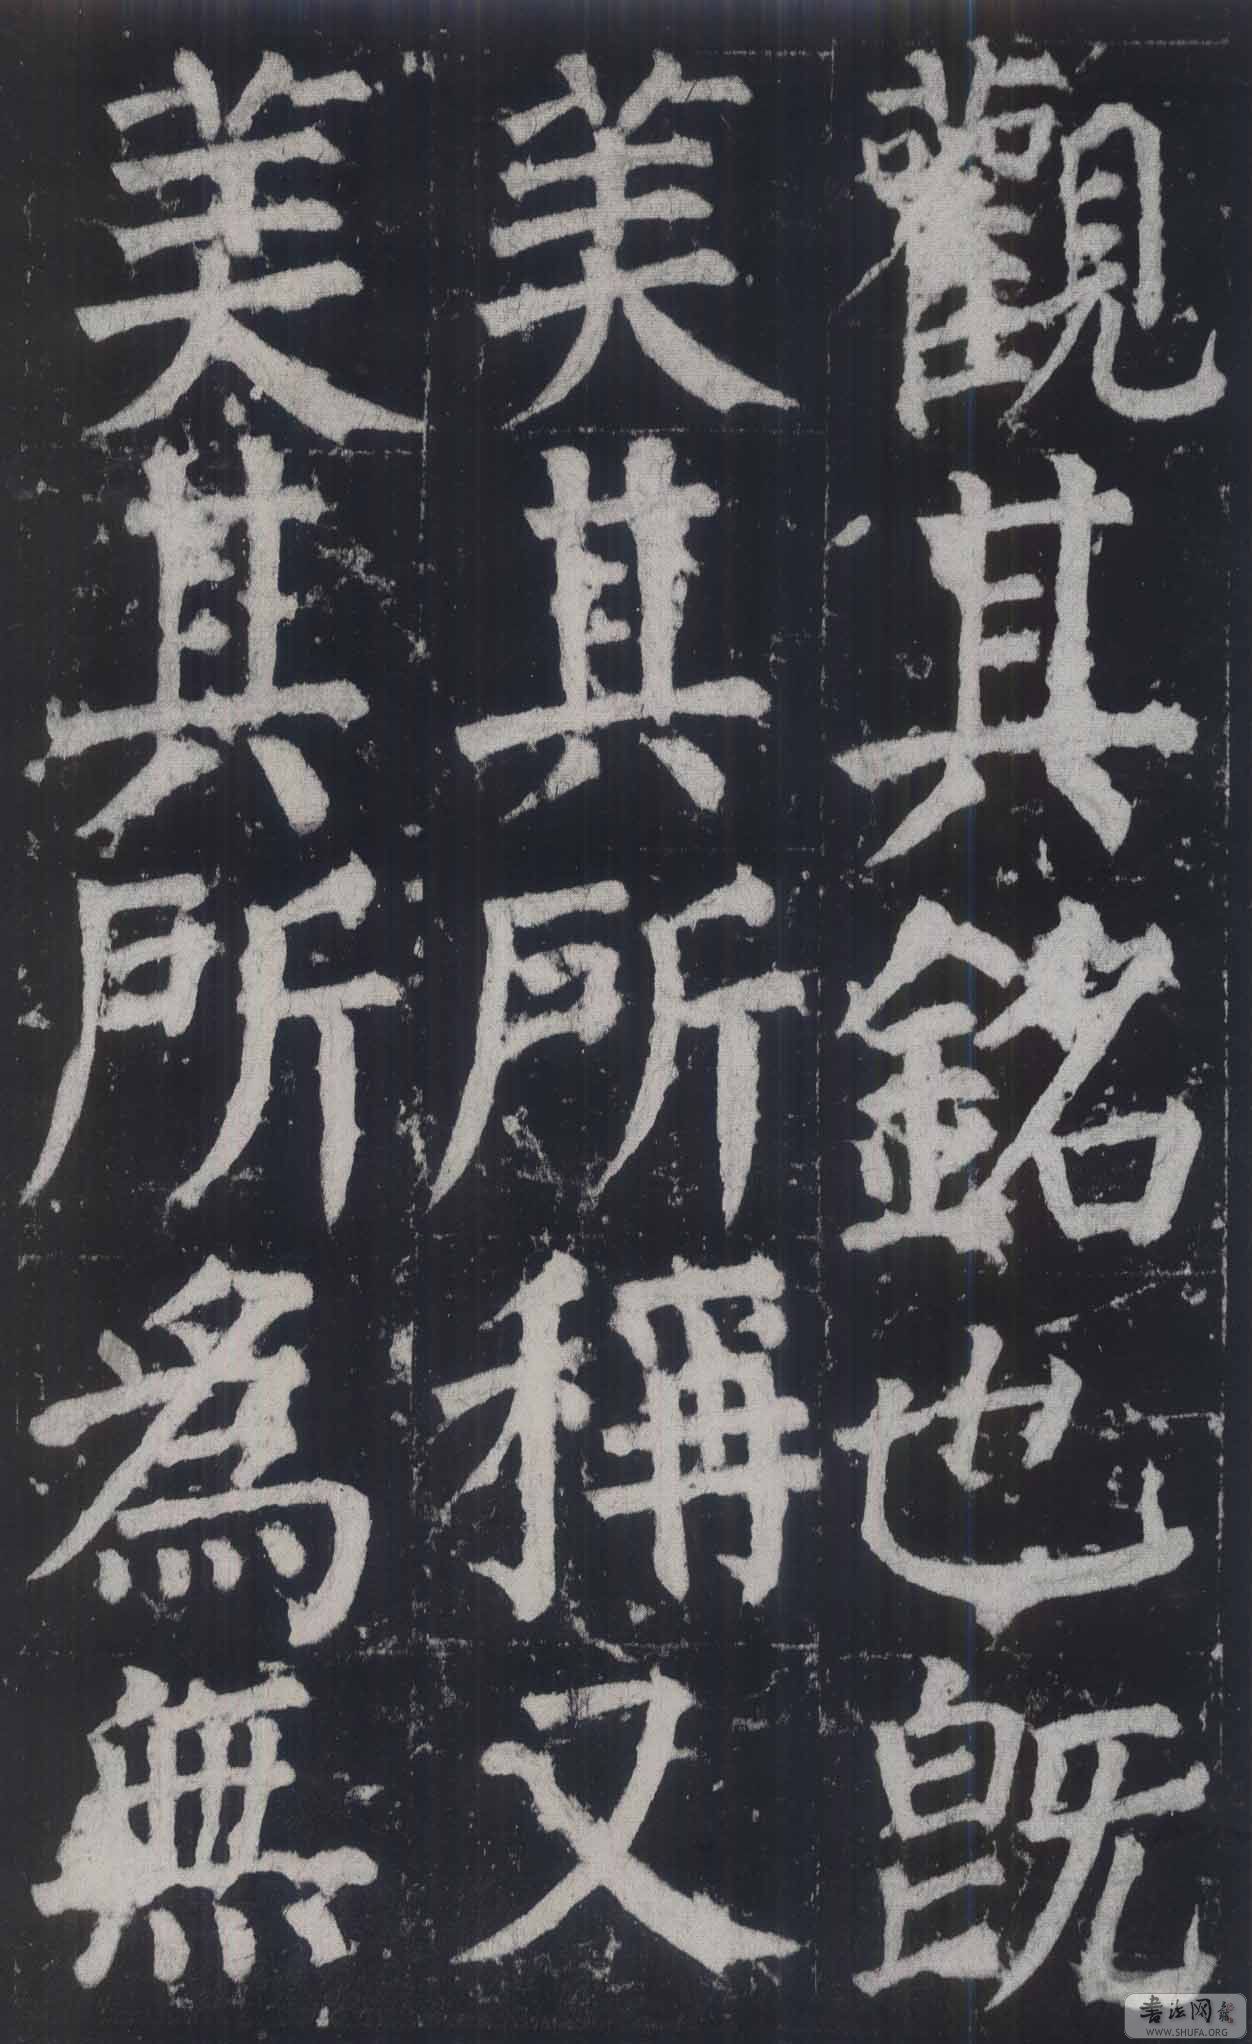 觀其銘也既
美其所稱又
美其所為無
書法网
WWW.SHUFA.ORG